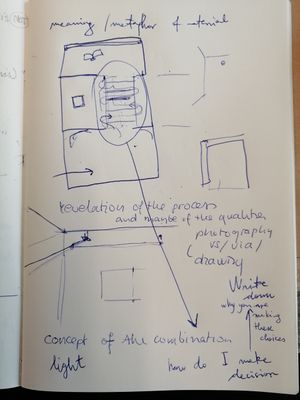 meaning / metaphor of material
revelation of the process
and maybe of the qualities
photography
vs/via/
drawing
Write
down
why you are
making
these
choices
concept of the combination
light
how do I make
decision